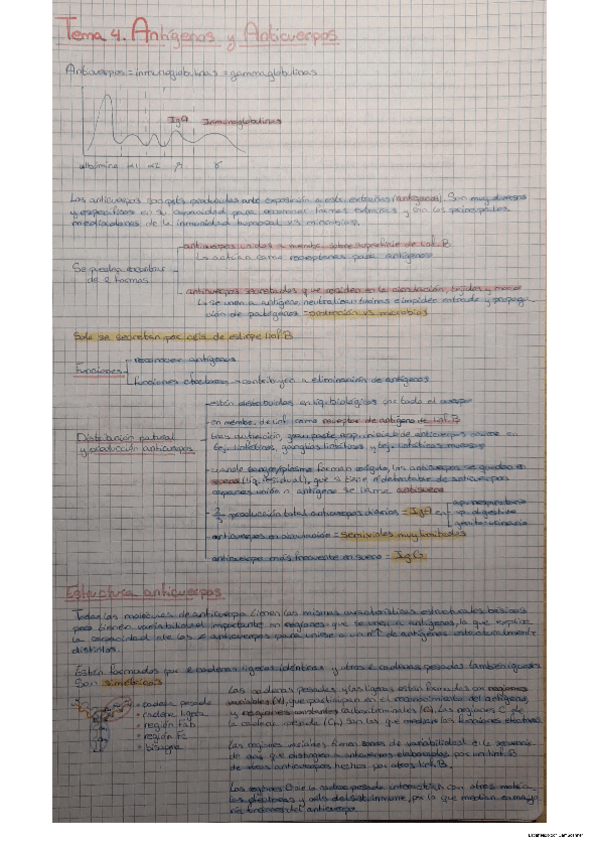 Tema 4. Antígenos y Anticuerpos
Anticuerpos = inmunoglobulinas = gammaglobulinas
IgA Inmunoglobulinas
albúmina α1 α2 β γ
Los anticuerpos son producidas ante exposición a extrañas (antígenos). Son muy diversos
y específicos en su capacidad para reconocer formas extrañas y son los principales
mediadores de la inmunidad humoral vs microbios.
anticuerpos unidos a membr. sobre superficie de linf. B
Lo actúan como receptores para antígenos
Se pueden encontrar
de 2 formas
anticuerpos secretados que residen en la circulación, tejidos y mucosas
se unen a antígeno, neutralizan toxinas e impiden entrada y propaga-
ción de patógenos = protección vs microbios
Solo se secretan por céls de estirpe linf B
Funciones
reconocer antígenos
funciones efectoras → contribuyen a eliminación de antígenos
Distribución natural
y producción anticuerpos
están distribuidos en líq. biológicos por todo el cuerpo
en membr. de linf. como receptor de antígeno de linf. B
tras activación, gran parte de anticuerpos ocurre en
tej. linfoides, ganglios linfáticos y tej. linfáticos mucosos
cuando sangre/plasma forman coágulo, los anticuerpos se quedan en
suero (líq. residual), que si tiene nº detectable de anticuerpos
unión antígeno se llama antisuero
2/3 producción total anticuerpos diarios = IgA en
ap. respiratorio
ap. digestivo
genitourinario
anticuerpos en circulación = semividas muy limitadas
anticuerpo más frecuente en suero = IgG
Estructura anticuerpos
Todas las moléculas de anticuerpo tienen las mismas características estructurales básicas
pero tienen variabilidad importante en regiones que se unen a antígenos, lo que explica
la capacidad de los anticuerpos para unirse a un nº de antígenos estructuralmente
distintos.
Están formados por 2 cadenas ligeras idénticas y otras 2 cadenas pesadas también iguales
Son simétricos
cadena pesada
cadena ligera
región Fab
región Fc
bisagra
Las cadenas pesadas y las ligeras están formadas por regiones
variables (V), que participan en el reconocimiento del antígeno,
y regiones constantes (C). Las regiones C de
la cadena pesada (CH) son las que median las funciones efectoras.
Las regiones variables tienen zonas de variabilidad de la secuencia
de aas que distingue a anticuerpos elaborados por un linf. B
de otros anticuerpos hechos por otros linf. B.
Las regiones C de la cadena pesada interactúan con otras moléculas
efectoras y céls del sist. inmune, por lo que median
funciones del anticuerpo.